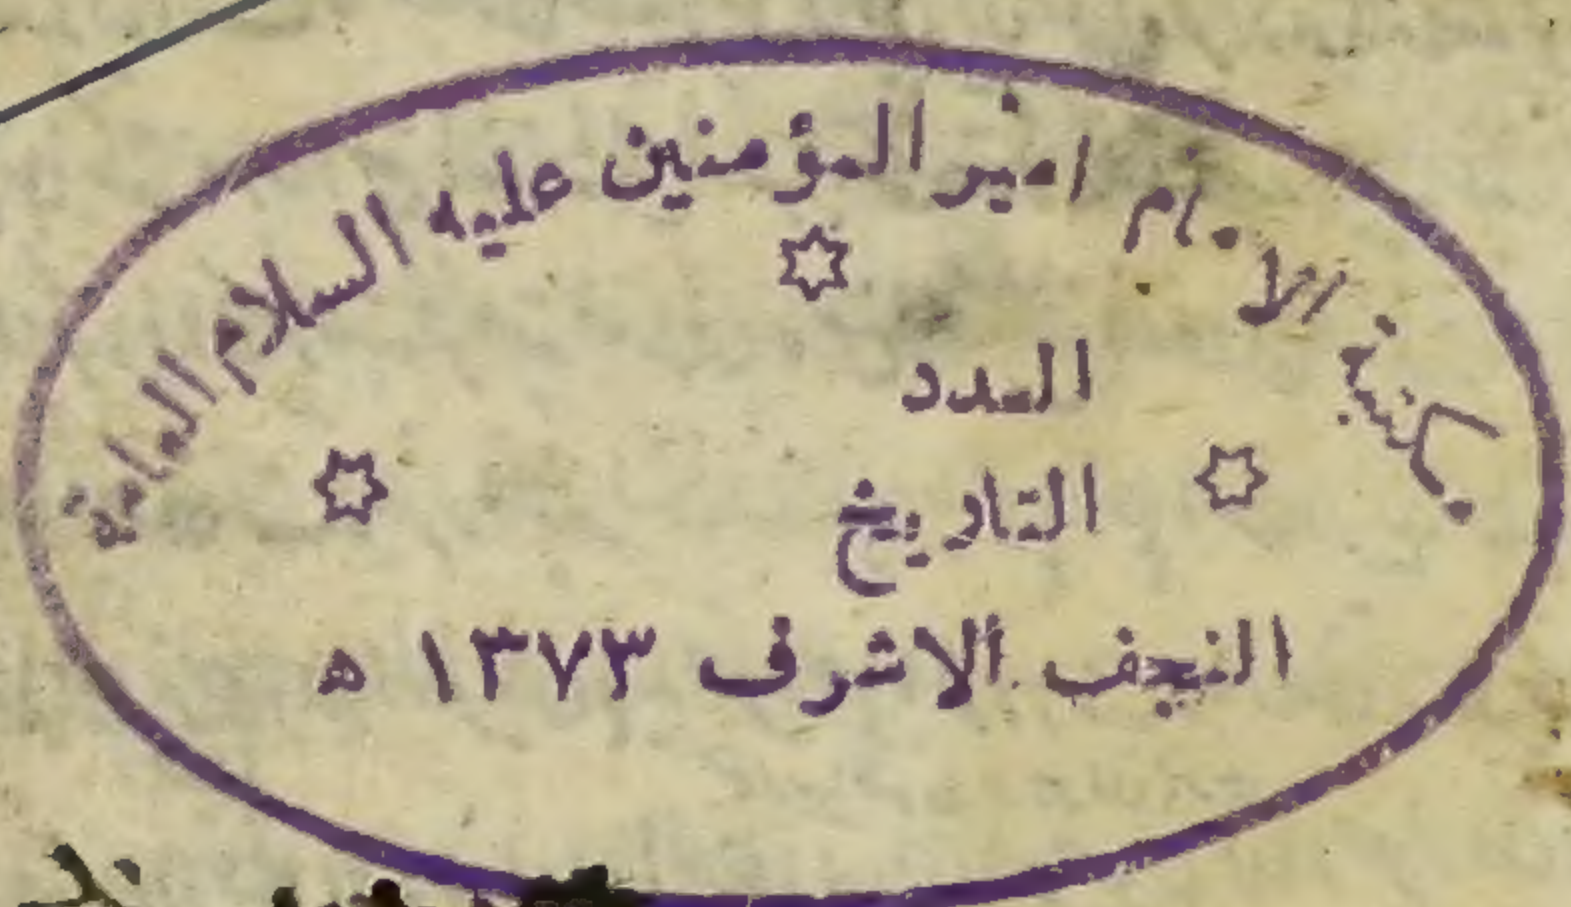 مكتبة الامام امير المؤمنين عليه السلام العامة
العدد
التاريخ
النجف الاشرف ١٣٧٣ ه